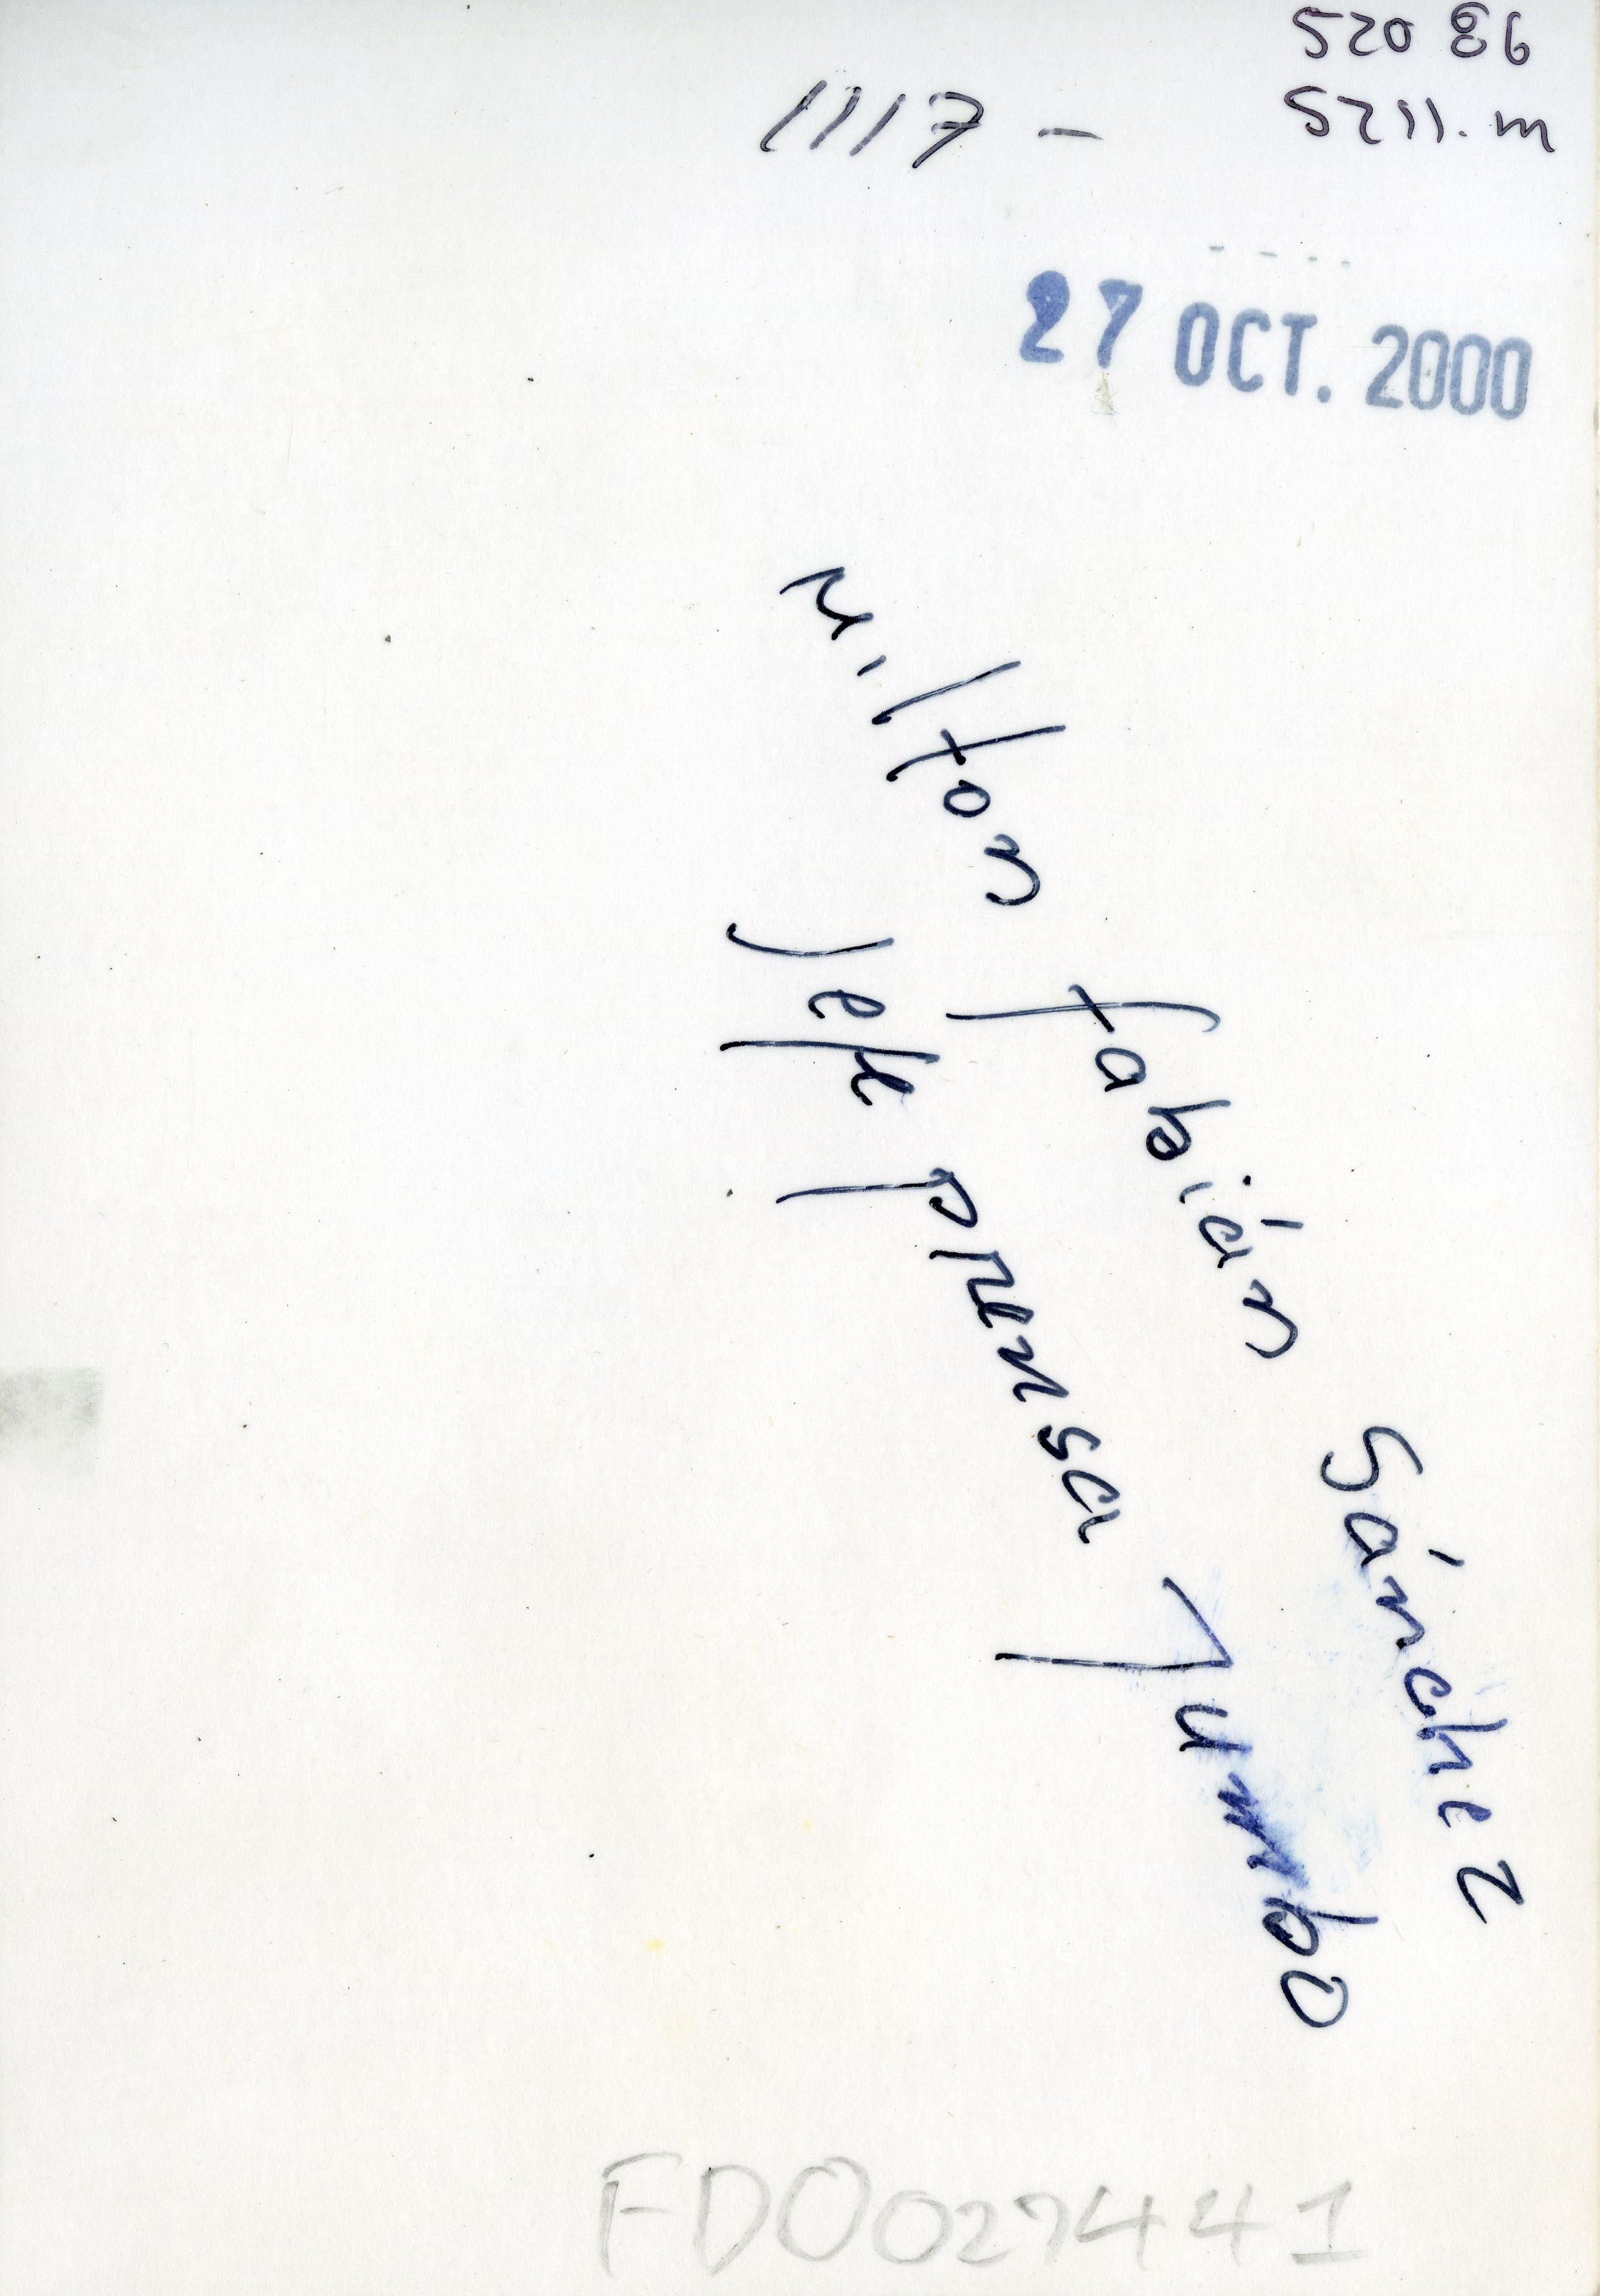 1117 -
27 OCT. 2000
Milton fabián Sánchez
Jefe prensa Jumbo
FD0027441